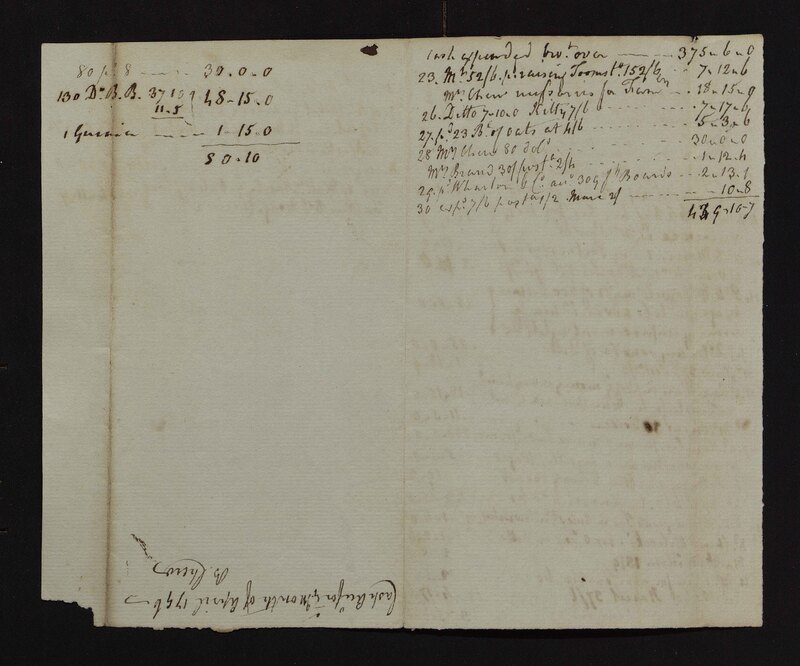 80 p. 8 — 30.0.0
130 Drs B. B. 37.10 } 48-15.0
11.5
1 Guinea — 1-15.0
80.10
Cash expended brot over — 375-6-0
23. Mrs 52/6 pd raising Tooms 152/6 — 7-12-6
Mrs Chew — 18-15-9
26. Ditto 7-10-0 Kitty 7/6 — 7-17-6
27. pd 23 Bs of oats at 4/6 — 5-3-6
28 Mrs Chew 80 dols — 30-0-0
Mrs Brand 30/ posta 2/4 — 1-12-4
29. pd Wharton Boards — 2-13-1
30 exps 7/6 posta 1/2 2/ — 10-8
16-7
Cash for ye Month of April 1796
B. Chew